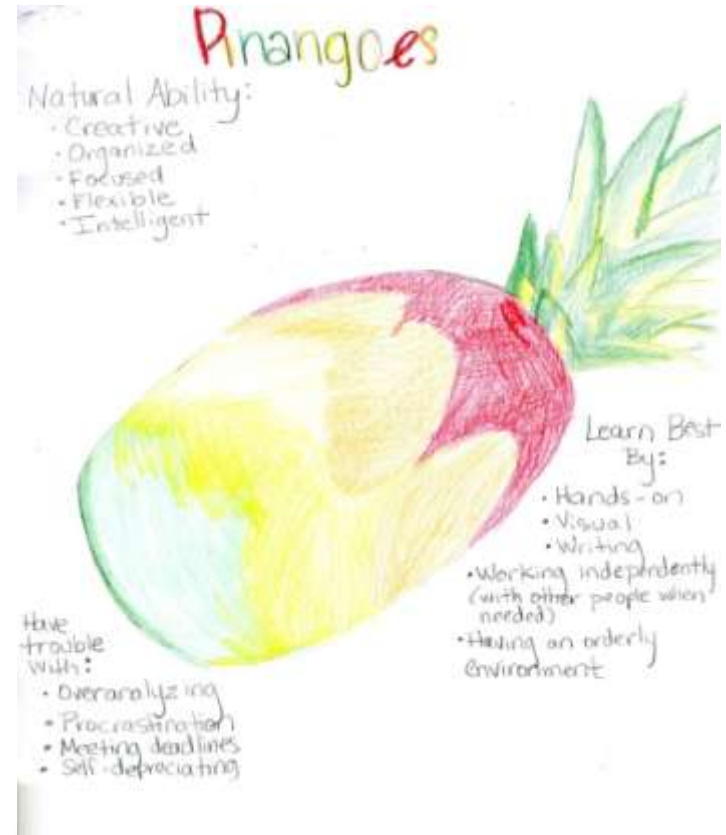 Pinangoes
Natural Ability:
• Creative
• Organized
• Focused
• Flexible
• Intelligent
Learn Best
By:
• Hands-on
• Visual
• Writing
• Working independently
(with other people when
needed)
• Having an orderly
environment
Have
trouble
with:
• Overanalyzing
• Procrastination
• Meeting deadlines
• Self-depreciating